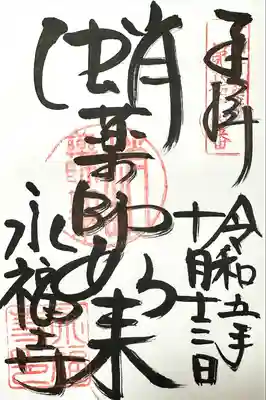 奉拝
令和五年
十月十三日
蛸薬師如来
永福寺